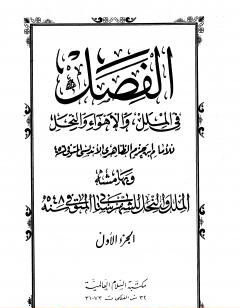 الفصل
في الملل والأهواء والنحل
للإمام ابن حزم الظاهري الأندلسي المتوفى
وبهامشه
الملل والنحل للشهرستاني المتوفى سنة ٥٤٨
الجزء الأول
مكتبة السلام العالمية